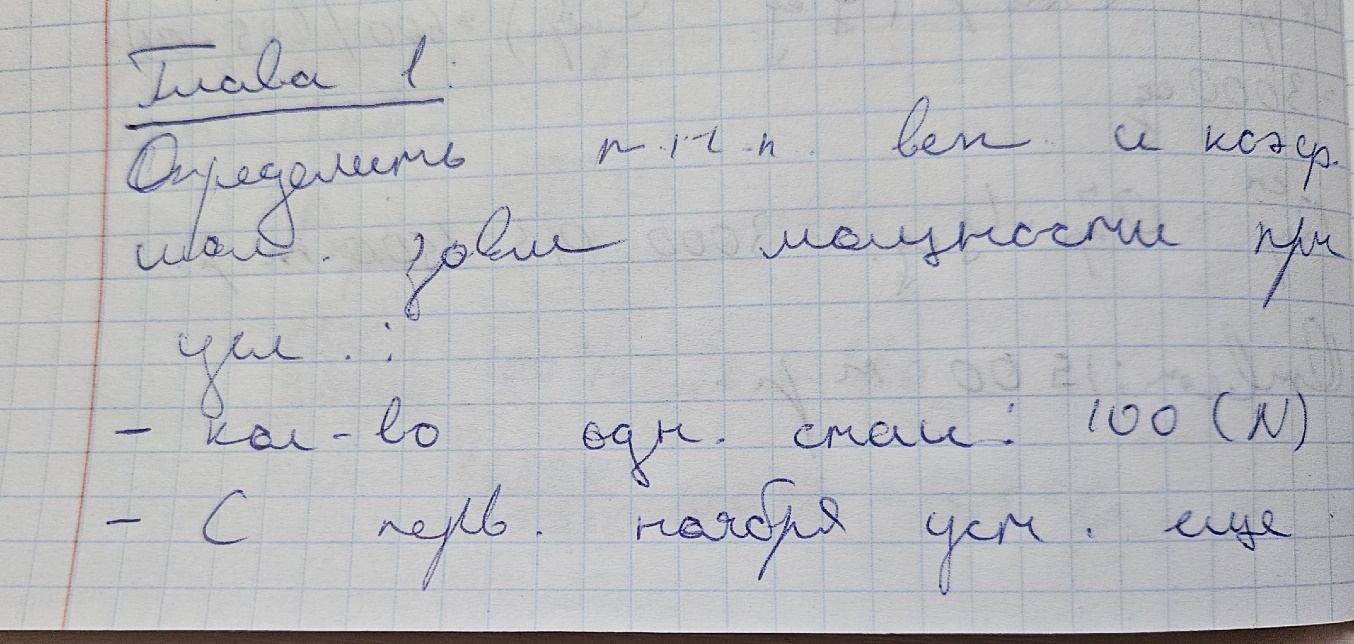 Глава 1.
Определить п.м.п. вып и коэф.
исп. завис мощности при
усл.:
- кол-во одн. стан: 100 (N)
- С перв. ноября уст. еще